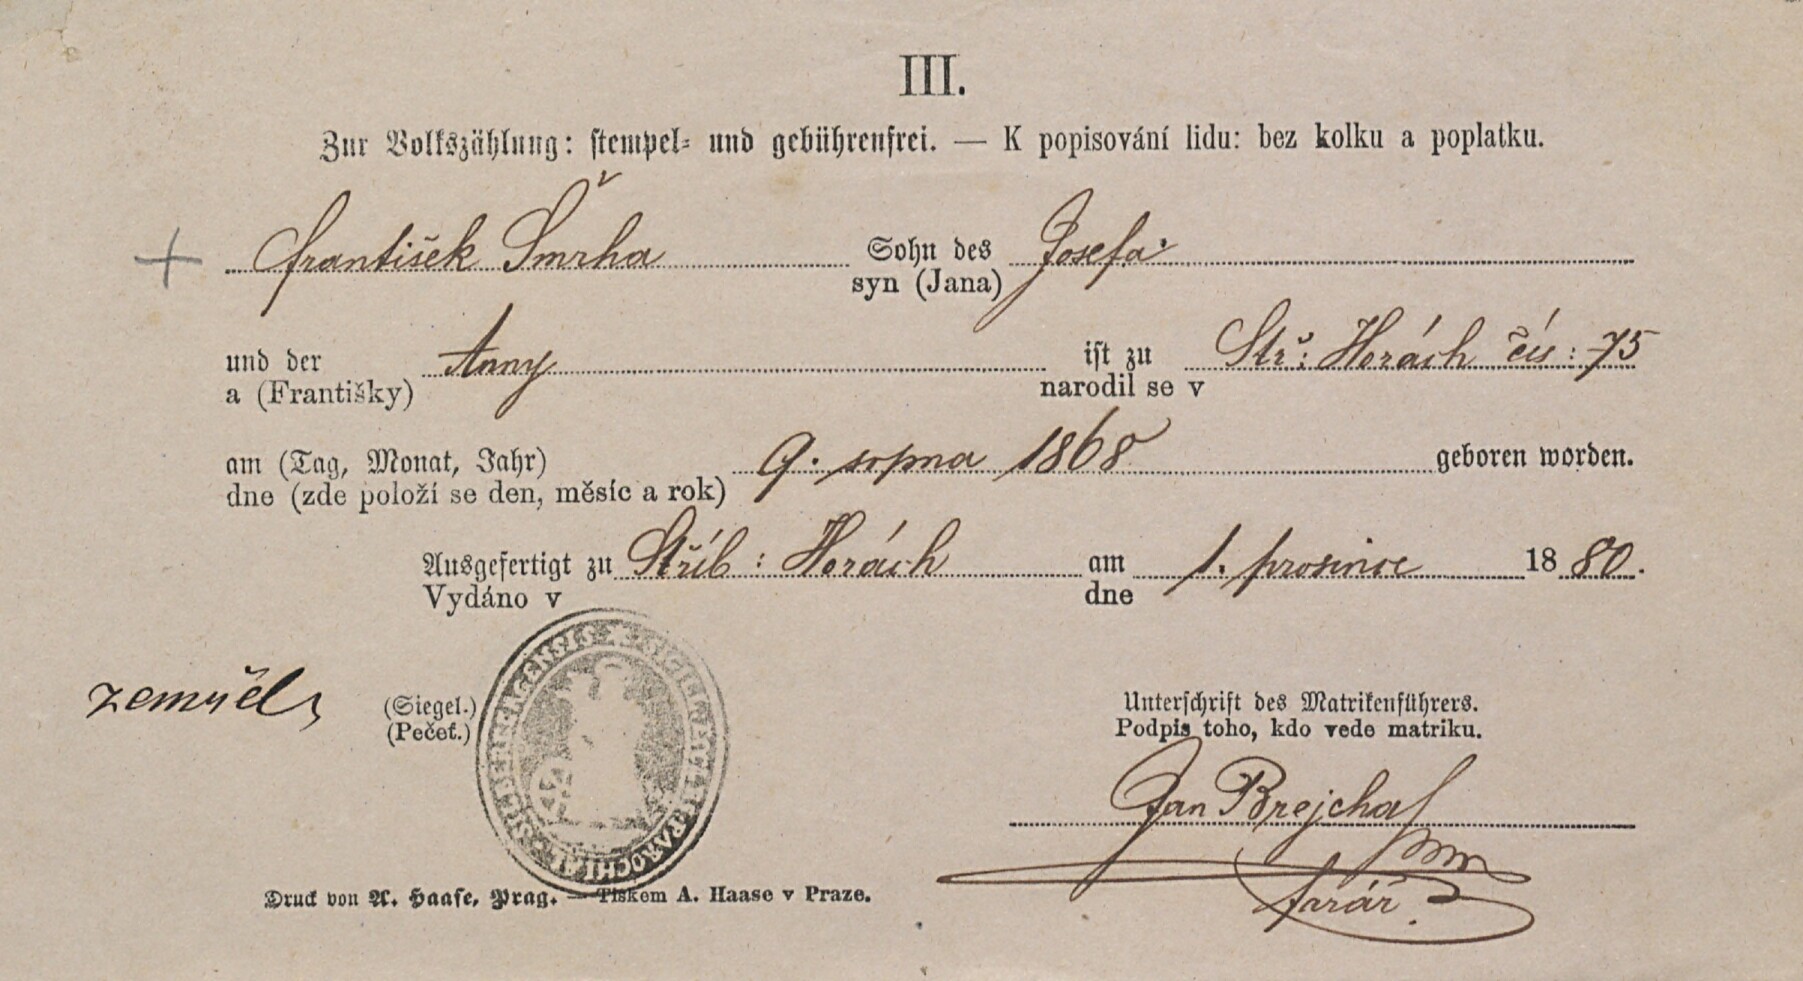 III.
Zur Volkszählung: stempel- und gebührenfrei. — K popisování lidu: bez kolku a poplatku.
+ František Šmrha Sohn des Josefa
syn (Jana)
und der Anny ist zu Stř: Horách čís: 75
a (Františky) narodil se v
am (Tag, Monat, Jahr) 9. srpna 1868 geboren worden.
dne (zde položí se den, měsíc a rok)
Ausgefertigt zu Stříb: Horách am 1. prosince 1880.
Vydáno v dne
zemřel
(Siegel.)
(Pečeť.)
Unterschrift des Matrikenführers.
Podpis toho, kdo vede matriku.
Jan Brejcha
farář.
Druck von A. Haase, Prag. — Tiskem A. Haase v Praze.